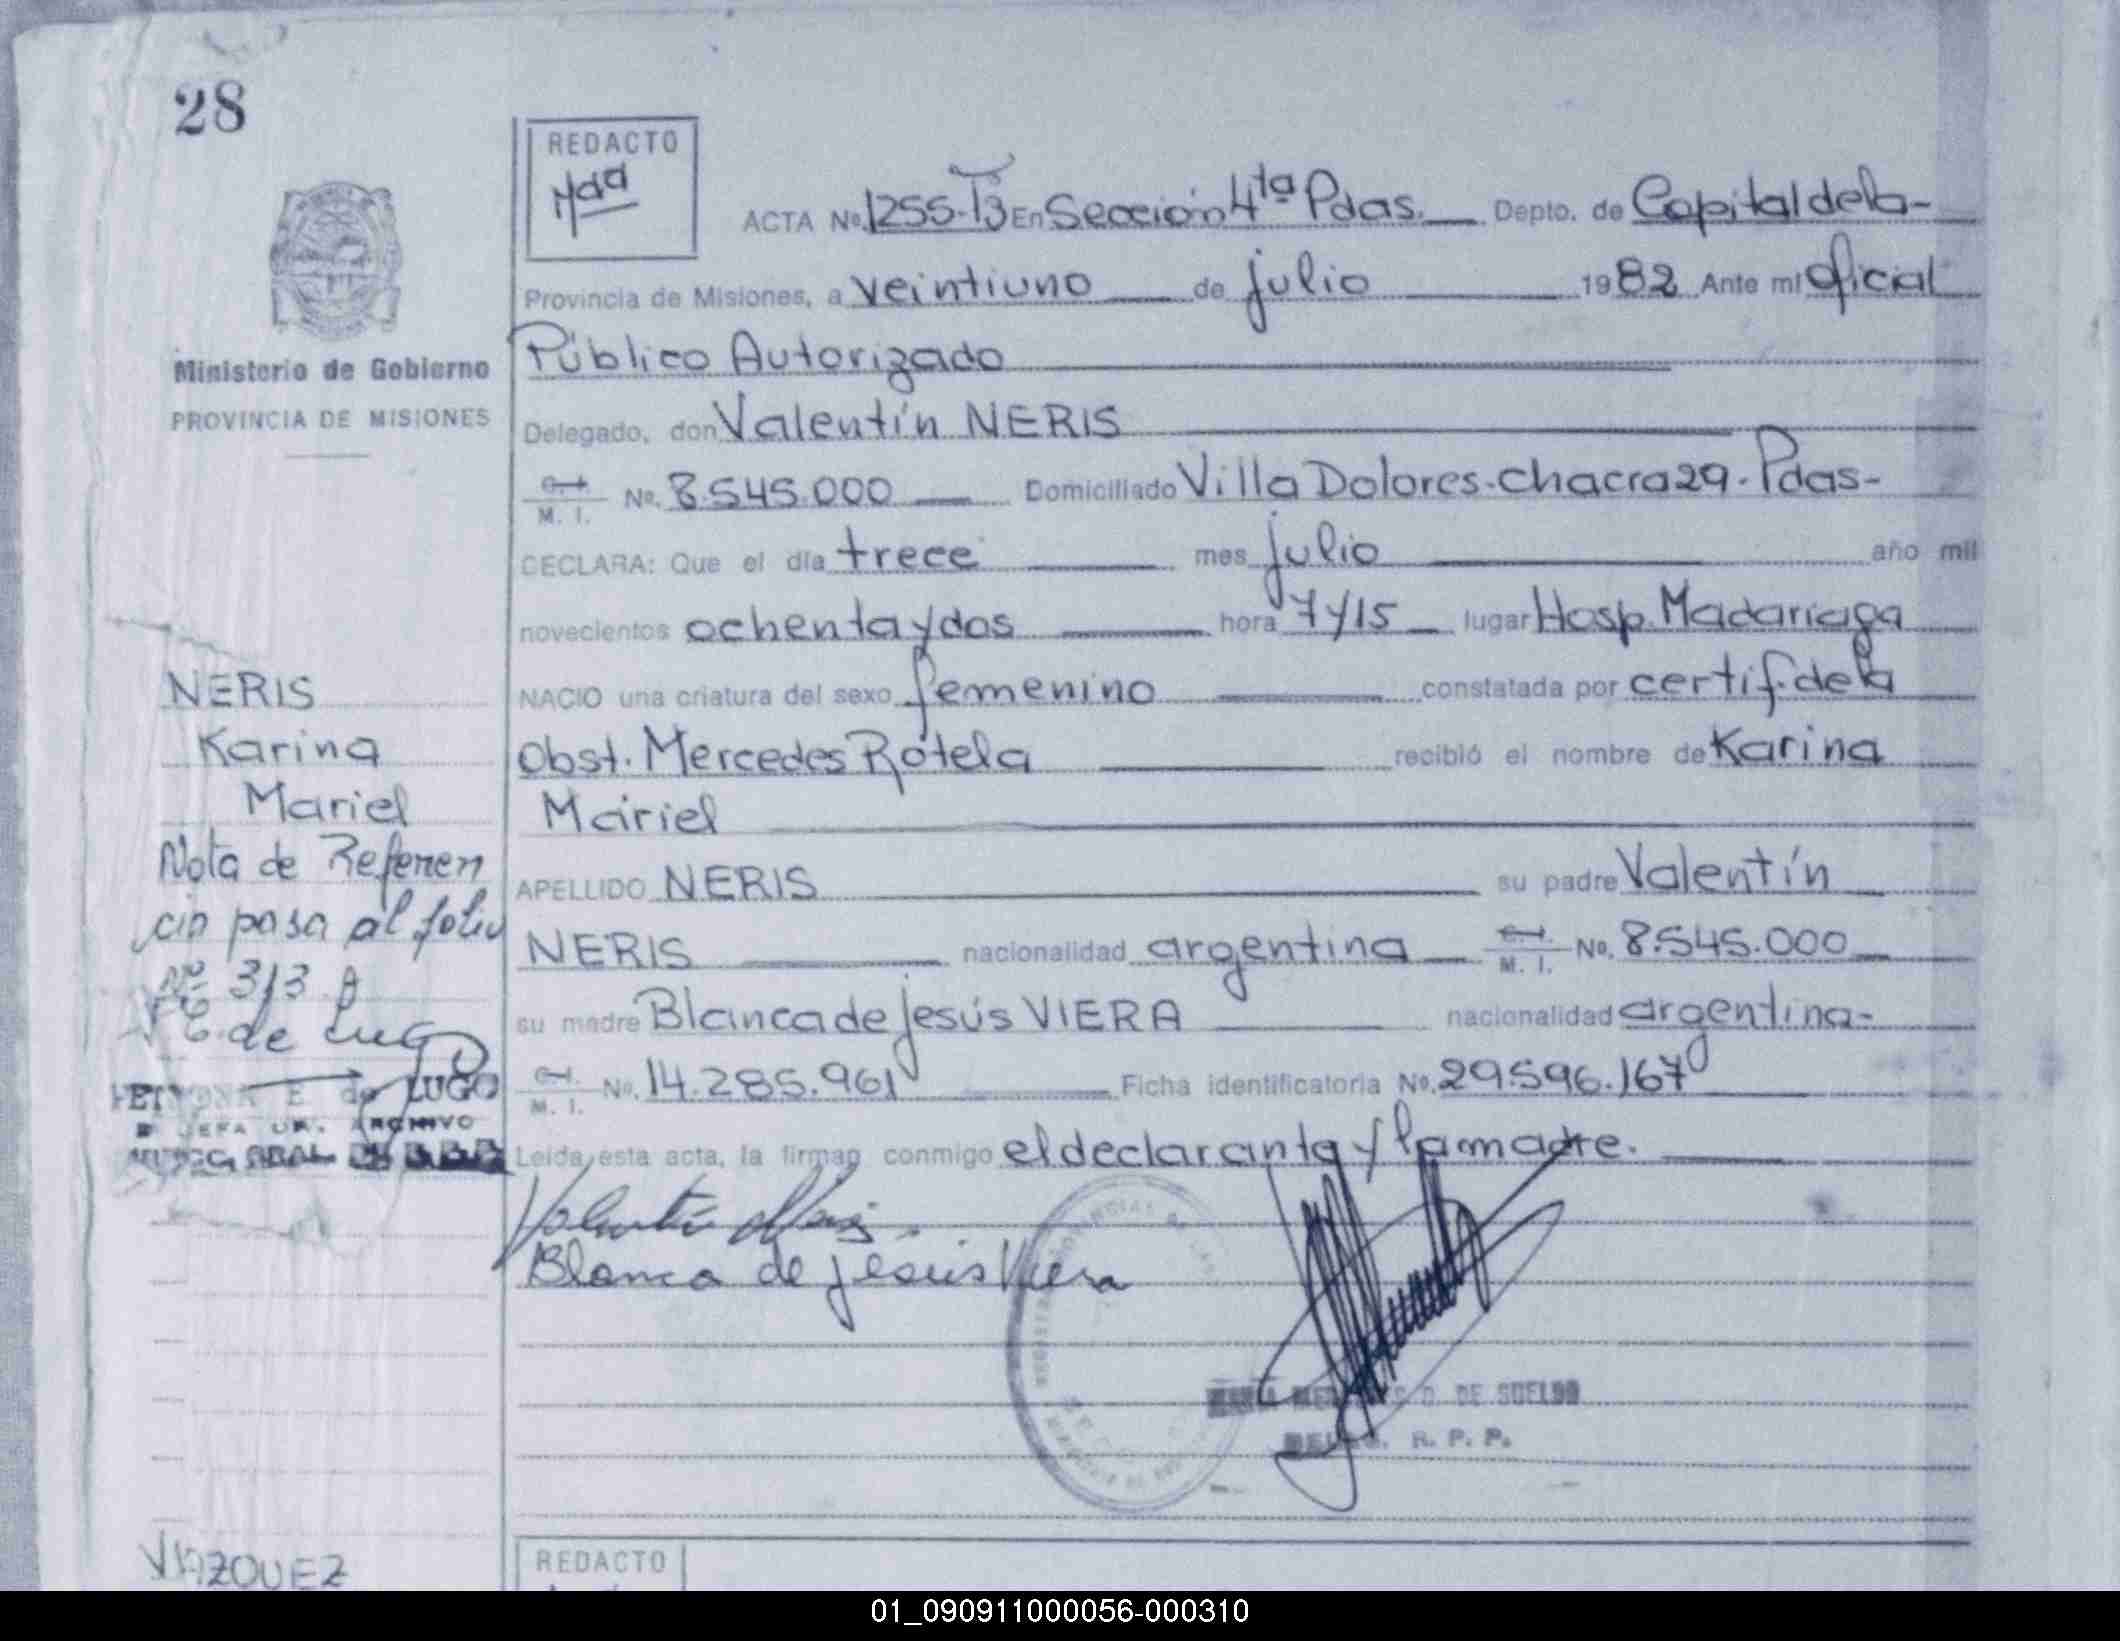 28
REDACTO
Mdd
ACTA Nº 1255-T3 En Sección 4ta Pdas. Depto. de Capital de la-
Provincia de Misiones, a veintiuno de julio 1982 Ante mi Oficial
Público Autorizado
Ministerio de Gobierno
PROVINCIA DE MISIONES
Delegado, don Valentín NERIS
C. I. M. I. No. 8.545.000 Domiciliado Villa Dolores-chacra 29-Pdas-
DECLARA: Que el día trece mes julio año mil
novecientos ochenta y dos hora 7 y 15 lugar Hosp. Madariaga
NACIO una criatura del sexo femenino constatada por certif. de la
Obst. Mercedes Rotela recibió el nombre de Karina
Mariel
APELLIDO NERIS su padre Valentín
NERIS nacionalidad argentina C. I. M. I. No. 8.545.000
su madre Blanca de Jesús VIERA nacionalidad argentina-
C. I. M. I. No. 14.285.961 Ficha identificatoria No. 29.596.167
Leída esta acta, la firman conmigo el declarante y la madre.
NERIS
Karina
Mariel
Nota de Referen
cia pasa al folio
Nº 313
E. de Lugo
E de LUGO
JEFA ARCHIVO
Valentín Neris
Blanca de Jesús Viera
D. DE SUELDO
R. P. P.
VAZQUEZ
REDACTO
01_090911000056-000310